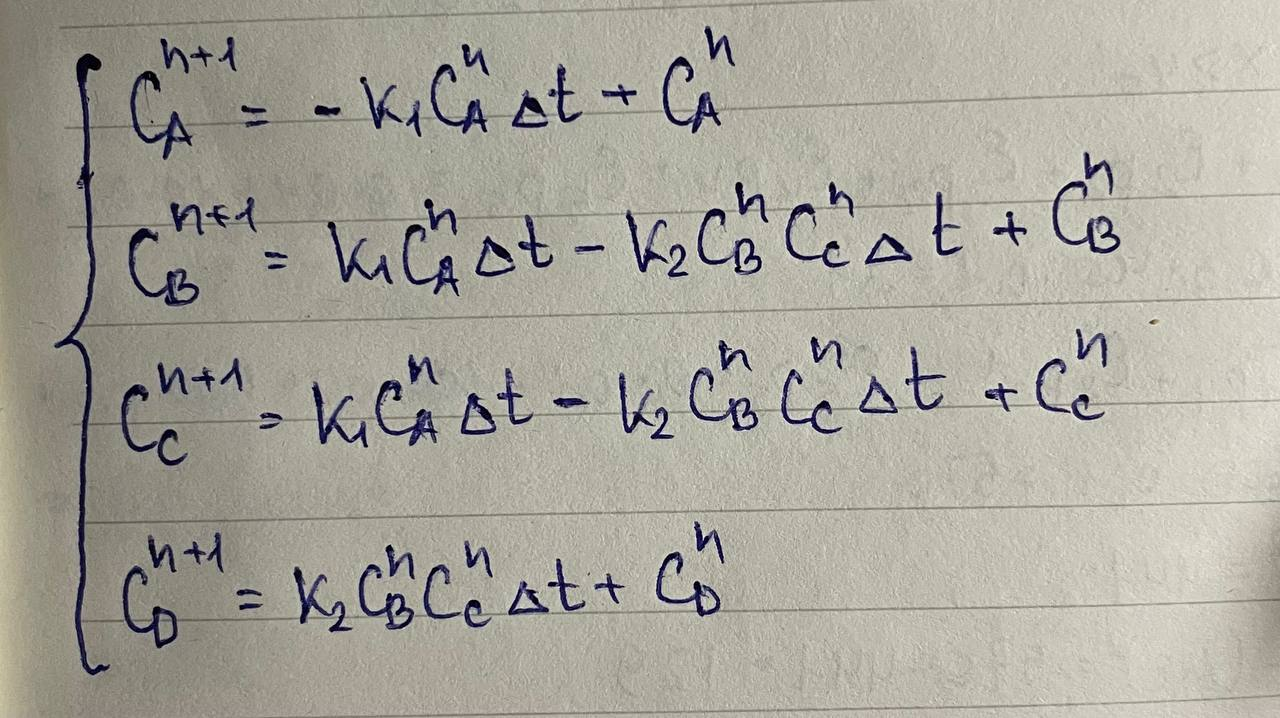 C_A^{n+1} = - k_1 C_A^n Δt + C_A^n
C_B^{n+1} = k_1 C_A^n Δt - k_2 C_B^n C_C^n Δt + C_B^n
C_C^{n+1} = k_1 C_A^n Δt - k_2 C_B^n C_C^n Δt + C_C^n
C_D^{n+1} = k_2 C_B^n C_C^n Δt + C_D^n